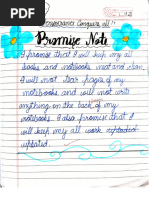 Perseverance Conquers all!
Promise Note
I promise that I will keep my all
books and notebooks not and clean,
I will not tear pages of my
notebooks and will not write
anything on the back of my
notebooks. I also promise that I
will keep my all work uploaded
updated.